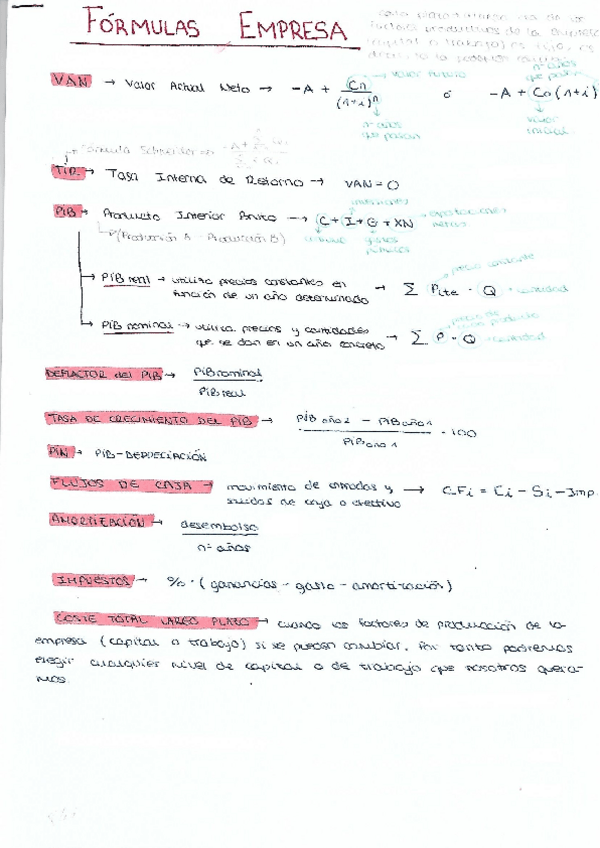 FÓRMULAS EMPRESA
VAN → Valor Actual Neto → -A + Cn / (1+i)ⁿ ó -A + Co (1+i)
valor futuro
nº años que pasan
nº años que pasan
valor inicial
Fórmula Schneider
TIR → Tasa Interna de Retorno → VAN = 0
PIB → Producto Interior Bruto → C + I + G + XN
inversiones
consumo
gastos públicos
(Producción A - Producción B)
→ PIB real → utiliza precios constantes en función de un año determinado → Σ Pcte · Q
precio constante
cantidad
→ PIB nominal → utiliza precios y cantidades que se dan en un año concreto → Σ P · Q
cantidad
DEFLACTOR del PIB → PIB nominal / PIB real
TASA DE CRECIMIENTO DEL PIB → PIB año 2 - PIB año 1 / PIB año 1 · 100
PIN → PIB - DEPRECIACIÓN
FLUJOS DE CAJA → movimiento de entradas y salidas de caja o efectivo → CFi = Ci - Si - Imp.
AMORTIZACIÓN → desembolso / nº años
IMPUESTOS → % · (ganancias - gasto - amortización)
COSTE TOTAL LARGO PLAZO → cuando los factores de producción de la
empresa (capital o trabajo) si se pueden cambiar. Por tanto podremos
elegir cualquier nivel de capital o de trabajo que nosotros quera-
mos.